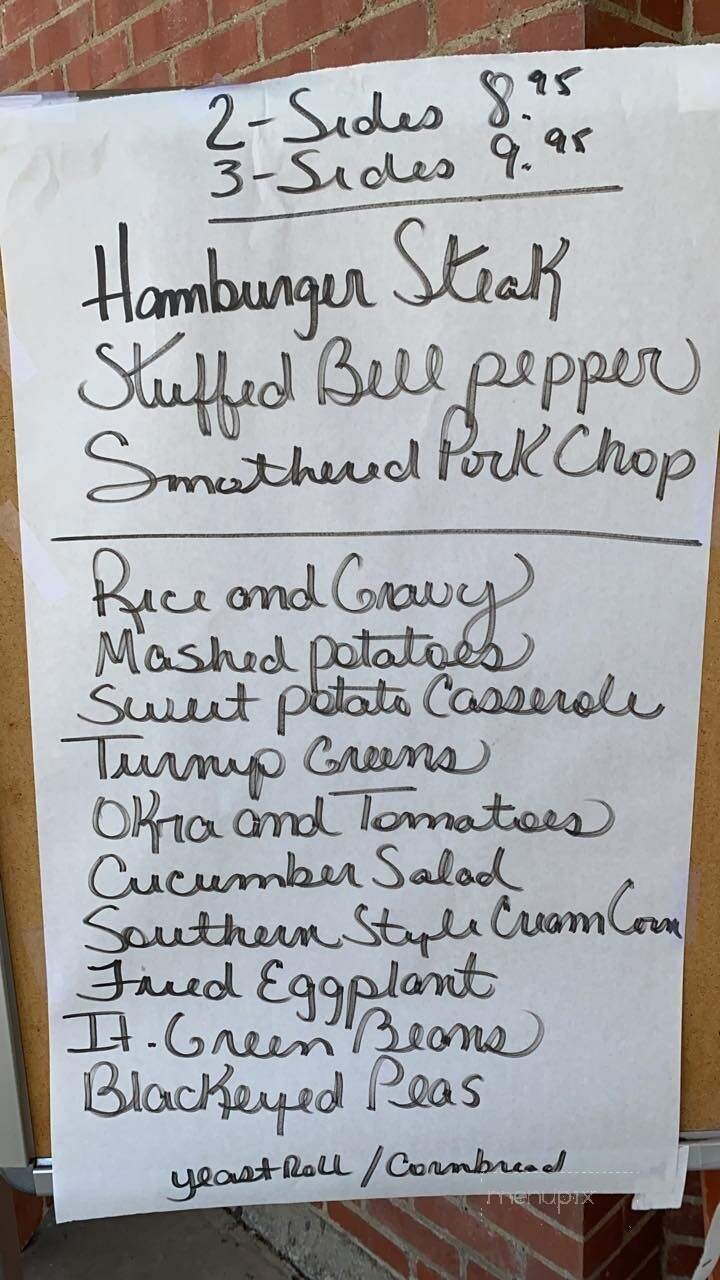 2-Sides 8.95
3-Sides 9.95
Hamburger Steak
Stuffed Bell pepper
Smothered Pork Chop
Rice and Gravy
Mashed potatoes
Sweet potato Casserole
Turnip Greens
Okra and Tomatoes
Cucumber Salad
Southern Style Cream Corn
Fried Eggplant
It. Green Beans
Blackeyed Peas
yeast Roll / Cornbread
menupix